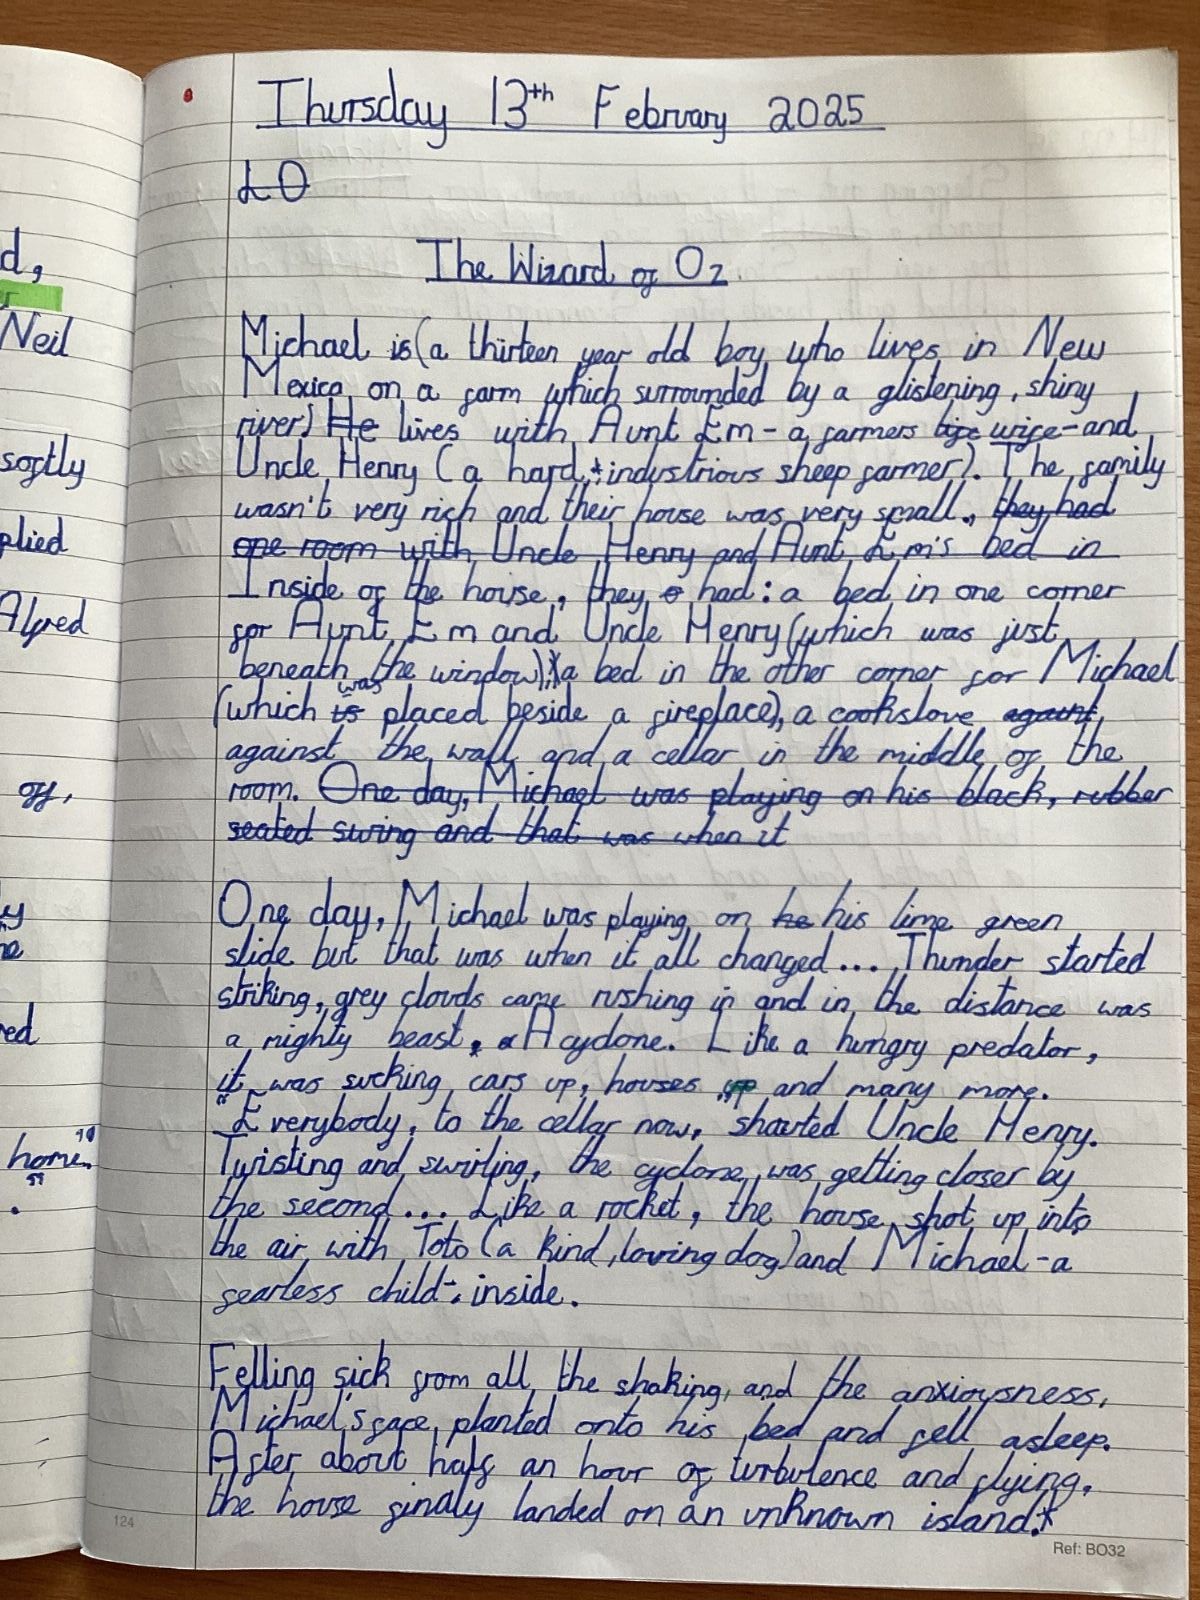 d,
r
Neil
softly
plied
Alfred
off,
ly
he
red
home."
Thursday 13th February 2025
LO
The Wizard of Oz
Michael is (a thirteen year old boy who lives in New
Mexico on a farm which surrounded by a glistening, shiny
river) He lives with Aunt Em - a farmers wife - and
Uncle Henry (a hard, industrious sheep farmer). The family
wasn't very rich and their house was very small., they had
one room with Uncle Henry and Aunt Em's bed in
Inside of the house, they had: a bed in one corner
for Aunt Em and Uncle Henry (which was just
beneath the window); a bed in the other corner for Michael
(which is was placed beside a fireplace), a cookslove against
against the wall and a cellar in the middle of the
room. One day, Michael was playing on his black, rubber
seated swing and that was when it
One day, Michael was playing on he his lime green
slide but that was when it all changed... Thunder started
striking, grey clouds came rushing in and in the distance was
a mighty beast. a A cyclone. Like a hungry predator,
it was sucking cars up, houses up and many more.
"Everybody, to the cellar now, shouted Uncle Henry.
Twisting and swirling, the cyclone was getting closer by
the second... Like a rocket, the house shot up into
the air with Toto (a kind, loving dog) and Michael - a
fearless child - inside.
Felling sick from all the shaking, and the anxiousness,
Michael's face planted onto his bed and fell asleep.
After about half an hour of turbulence and flying,
the house finaly landed on an unknown island.*
124
Ref: BO32